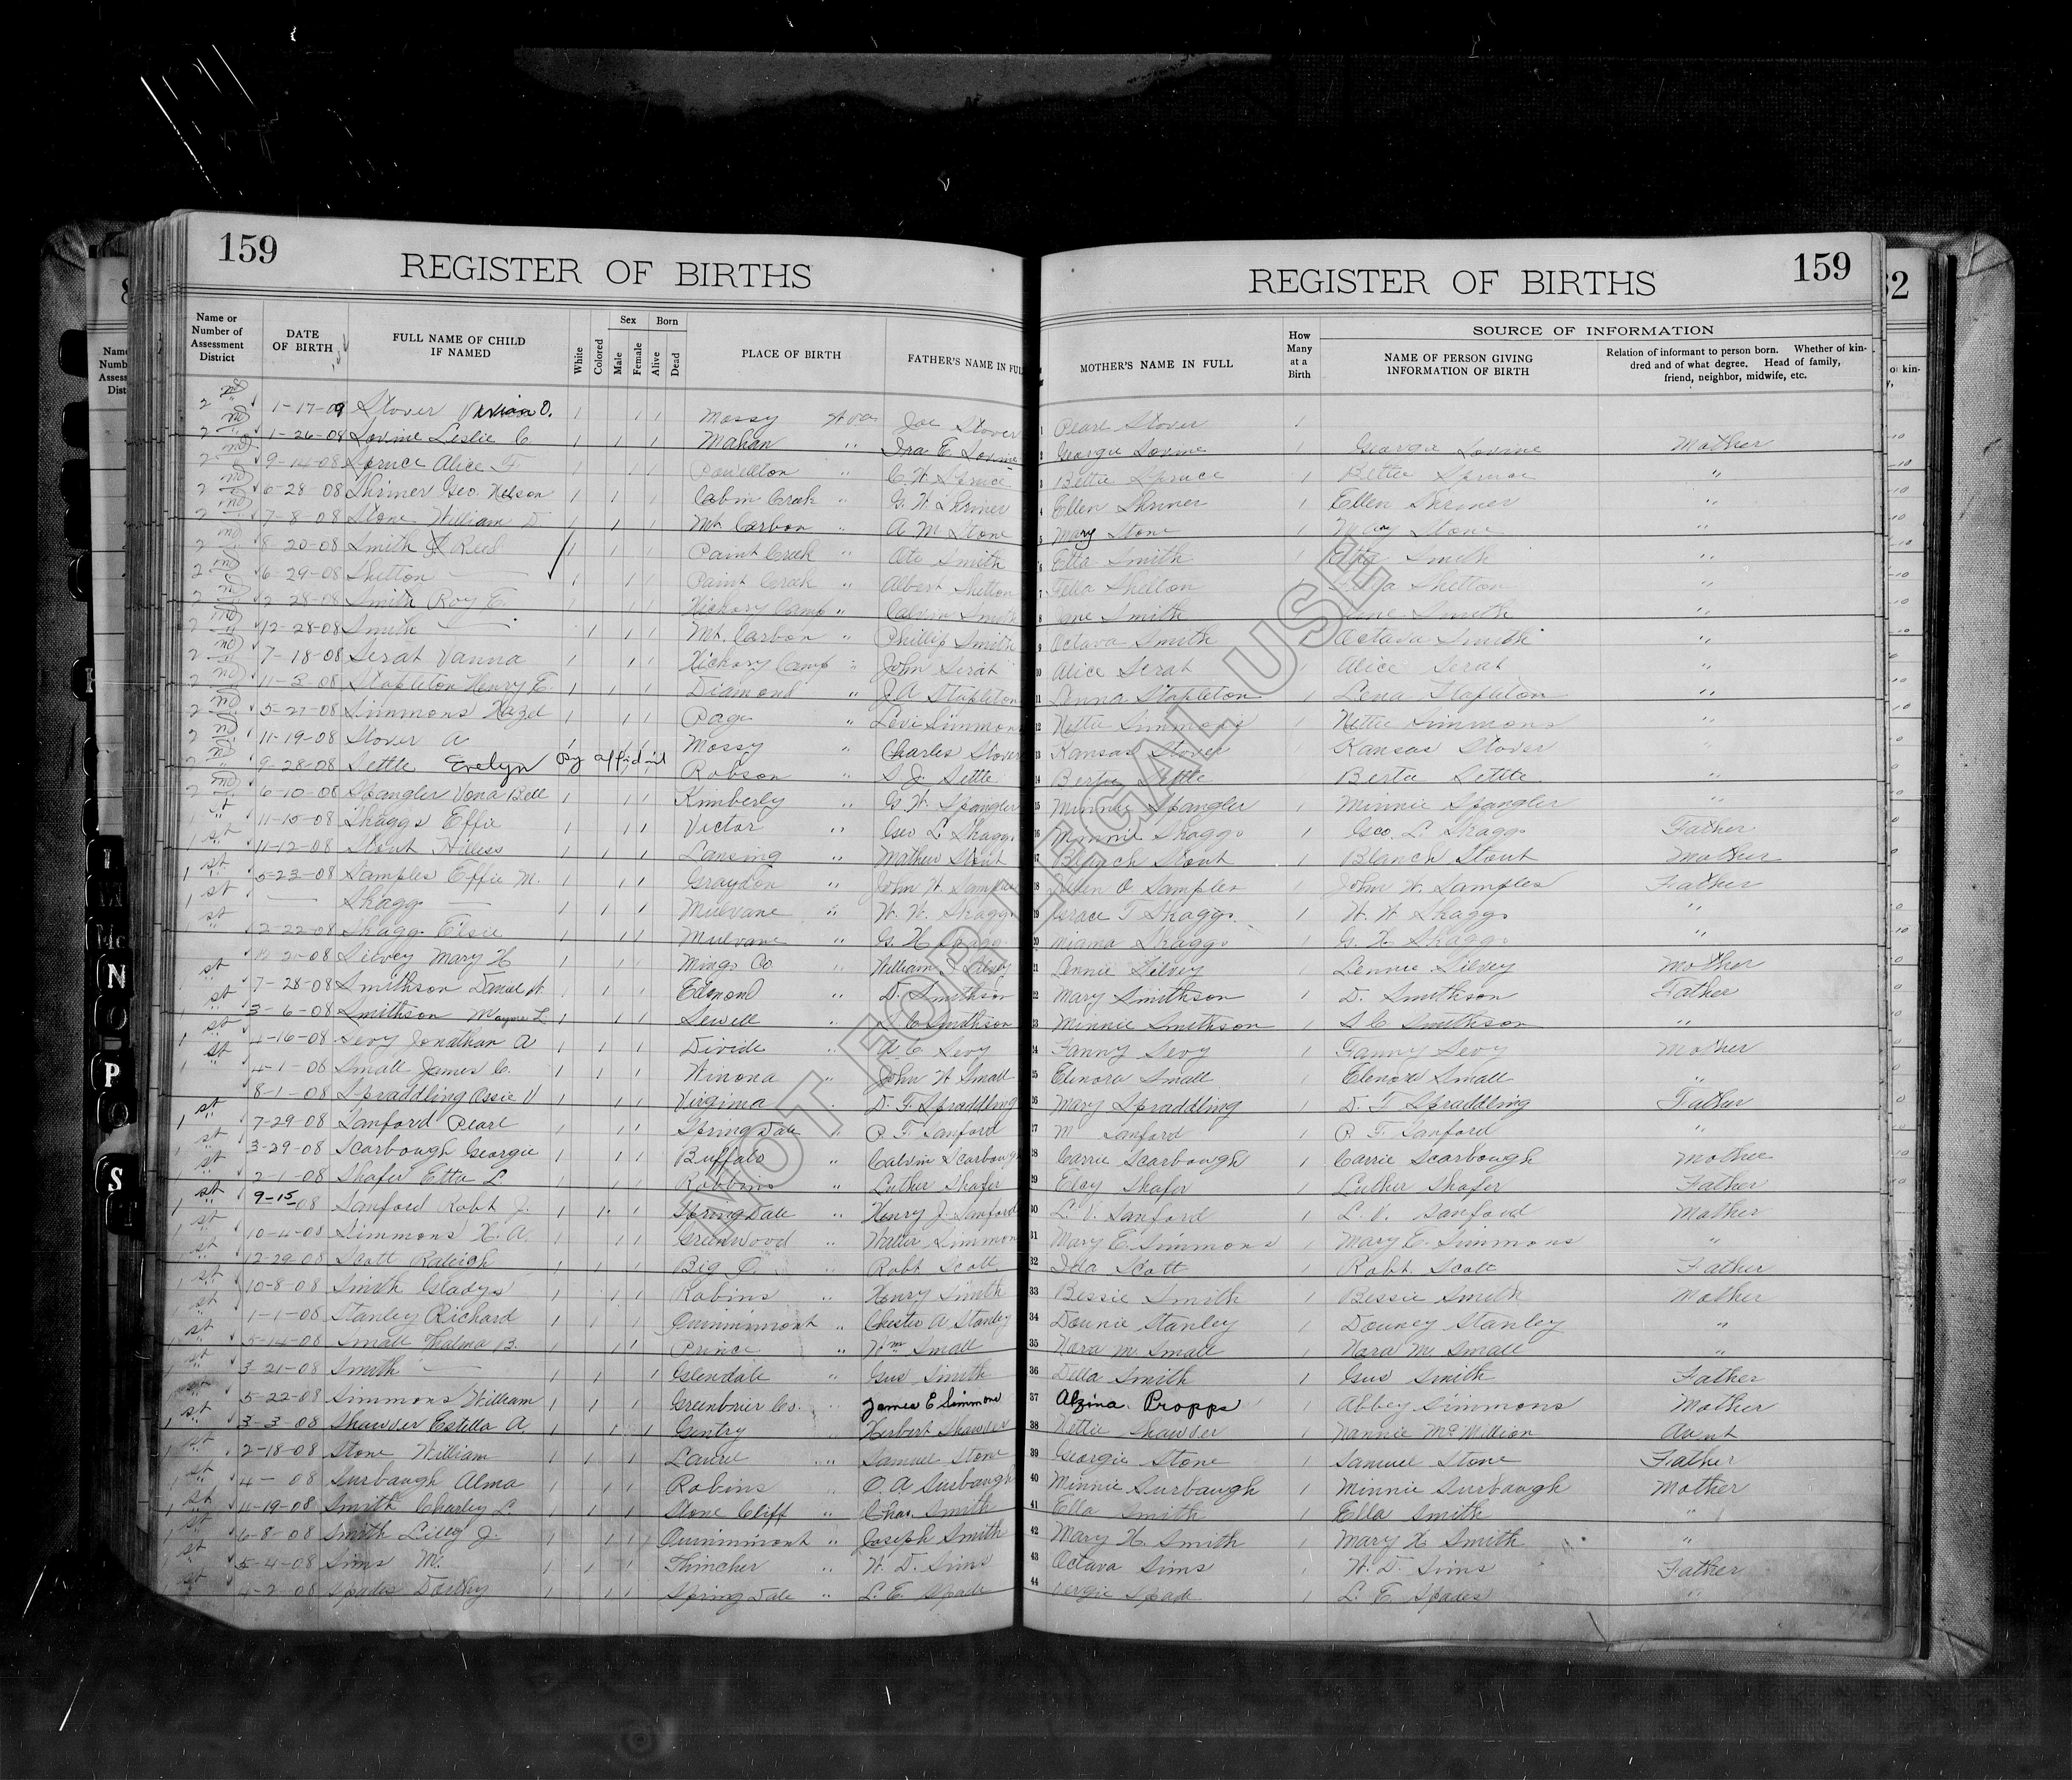 159 REGISTER OF BIRTHS REGISTER OF BIRTHS 159
Name or Number of Assessment District DATE OF BIRTH FULL NAME OF CHILD IF NAMED White Colored Sex Male Female Born Alive Dead PLACE OF BIRTH FATHER'S NAME IN FULL MOTHER'S NAME IN FULL How Many at a Birth SOURCE OF INFORMATION NAME OF PERSON GIVING INFORMATION OF BIRTH Relation of informant to person born. Whether of kindred and of what degree. Head of family, friend, neighbor, midwife, etc.
2nd 1-17-09 Stover Vivian O. Mossy W Va Joe Stover 1 Pearl Stover 1
2nd 1-26-08 Lovine Leslie C. Mahan " Ira E. Lovine 2 Georgie Lovine 1 Georgie Lovine Mother
2nd 9-14-08 Spruce Alice F Powellton " C. W. Spruce 3 Bettie Spruce 1 Bettie Spruce "
2nd 6-28-08 Shriner Geo. Nelson Cabin Creek " G. W. Shriner 4 Ellen Shriner 1 Ellen Shriner "
2nd 7-8-08 Stone William D Mt Carbon " A M Stone 5 Mary Stone 1 Mary Stone "
2nd 8-20-08 Smith Reed Paint Creek " Ote Smith 6 Etta Smith 1 Etta Smith "
2nd 6-29-08 Shelton — Paint Creek " Albert Shelton 7 Fella Shelton Shelton "
2nd 2-28-08 Smith Roy E. Hickory Camp " Calvin Smith 8 Jane Smith Jane Smith "
2nd 12-28-08 Smith — Mt. Carbon " Phillip Smith 9 Octava Smith Octava Smith "
2nd 7-18-08 Serat Vanna Hickory Camp " John Serat 10 Alice Serat Alice Serat "
2nd 11-3-08 Stapleton Henry E. Diamond " J. A Stapleton 11 Lenna Stapleton Lena Stapleton "
2nd 5-27-08 Simmons Hazel Page " Levi Simmons 12 Nettie Simmons Nettie Simmons "
2nd 11-19-08 Stover A Mossy " Charles Stover 13 Kansas Stover Kansas Stover
2nd 9-28-08 Settle Evelyn By affidavit Robson " S. J. Settle 14 Berta Settle 1 Berta Settle "
2nd 6-10-08 Spangler Vona Bell Kimberly " G. W. Spangler 15 Minnie Spangler 1 Minnie Spangler "
1st 11-15-08 Skaggs Effie Victor " Geo L Skaggs 16 Minnie Skaggs 1 Geo. L. Skaggs Father
1st 11-12-08 Stout Lansing " Mathew Stout 17 Blanch Stout 1 Blanch Stout Mother
1st 5-23-08 Samples Effie M. Graydon " John W Samples 18 O Samples 1 John W. Samples Father
1st — Skaggs — Mulvane " W. W. Skaggs 19 Grace T Skaggs 1 W. W. Skaggs "
1st 2-22-08 Skaggs Elsie Mulvane " G. H Skaggs 20 Niama Skaggs 1 G. H. Skaggs "
Silvey Mary H Mingo Co " William Silvey 21 Lennie Silvey 1 Lennie Silvey Mother
1st 7-28-08 Smithson Daniel W. Edmond " D. Smithson 22 Mary Smithson 1 D. Smithson Father
1st 3-6-08 Smithson Wayne L Sewell " S C Smithson 23 Minnie Smithson 1 S C Smithson "
1st 4-16-08 Sevy Jonathan A Divide " A C Sevy 24 Fanny Sevy 1 Fanny Sevy Mother
1st 4-1-08 Small James C. Winona " John W Small 25 Elenora Small 1 Elenora Small "
8-1-08 Spraddling Ossie V Virginia " D. F. Spraddling 26 Mary Spraddling 1 D. F Spraddling Father
1st 7-29-08 Sanford Pearl Spring Dale " P. F. Sanford 27 M Sanford 1 P. F. Sanford "
1st 3-29-08 Scarbough Georgie Buffalo " Calvin Scarbough 28 Carrie Scarbough 1 Carrie Scarbough Mother
1st 2-1-08 Shafer Etta L Robbins " Luther Shafer 29 Elcy Shafer 1 Luther Shafer Father
1st 9-15-08 Sanford Robt J. Spring Dale " Henry J. Sanford 30 L. V. Sanford 1 L. V. Sanford Mother
1st 10-4-08 Simmons H. A. Greenwood " Walter Simmons 31 Mary E. Simmons 1 Mary E. Simmons "
1st 12-29-08 Scott Raleigh Big Q. " Robt Scott 32 Ida Scott 1 Robt. Scott Father
1st 10-8-08 Smith Gladys Robins " Henry Smith 33 Bessie Smith 1 Bessie Smith Mother
1st 1-1-08 Stanley Richard Quinnimont " Chester A Stanley 34 Dounie Stanley 1 Douney Stanley "
1st 5-14-08 Small Thalma B. Prince " Wm Small 35 Nora M. Small 1 Nora M Small "
1st 3-21-08 Smith — Glendale " Gus Smith 36 Della Smith 1 Gus Smith Father
1st 5-22-08 Simmons William Greenbrier Co. " James E Simmons 37 Alzina Propps 1 Abbey Simmons Mother
1st 3-3-08 Shawver Estella A. Gentry " Herbert Shawver 38 Nettie Shawver 1 Nannie McMillion Aunt
1st 2-18-08 Stone William Laurel " Samuel Stone 39 Georgie Stone 1 Samuel Stone Father
1st 4- 08 Surbaugh Alma Robins " O. A Surbaugh 40 Minnie Surbaugh 1 Minnie Surbaugh Mother
1st 11-19-08 Smith Charley L. Stone Cliff " Chas. Smith 41 Ella Smith 1 Ella Smith "
1st 6-8-08 Smith Lilly J. Quinnimont " Joseph Smith 42 Mary H. Smith 1 Mary H Smith "
1st 5-4-08 Sims M. Thincher " W. D. Sims 43 Octava Sims 1 W. D. Sims Father
1st 4-2-08 Spades Dorthy Spring Dale " L. E. Spade 44 Vergie Spade 1 L. E. Spades "
NOT FOR LEGAL USE